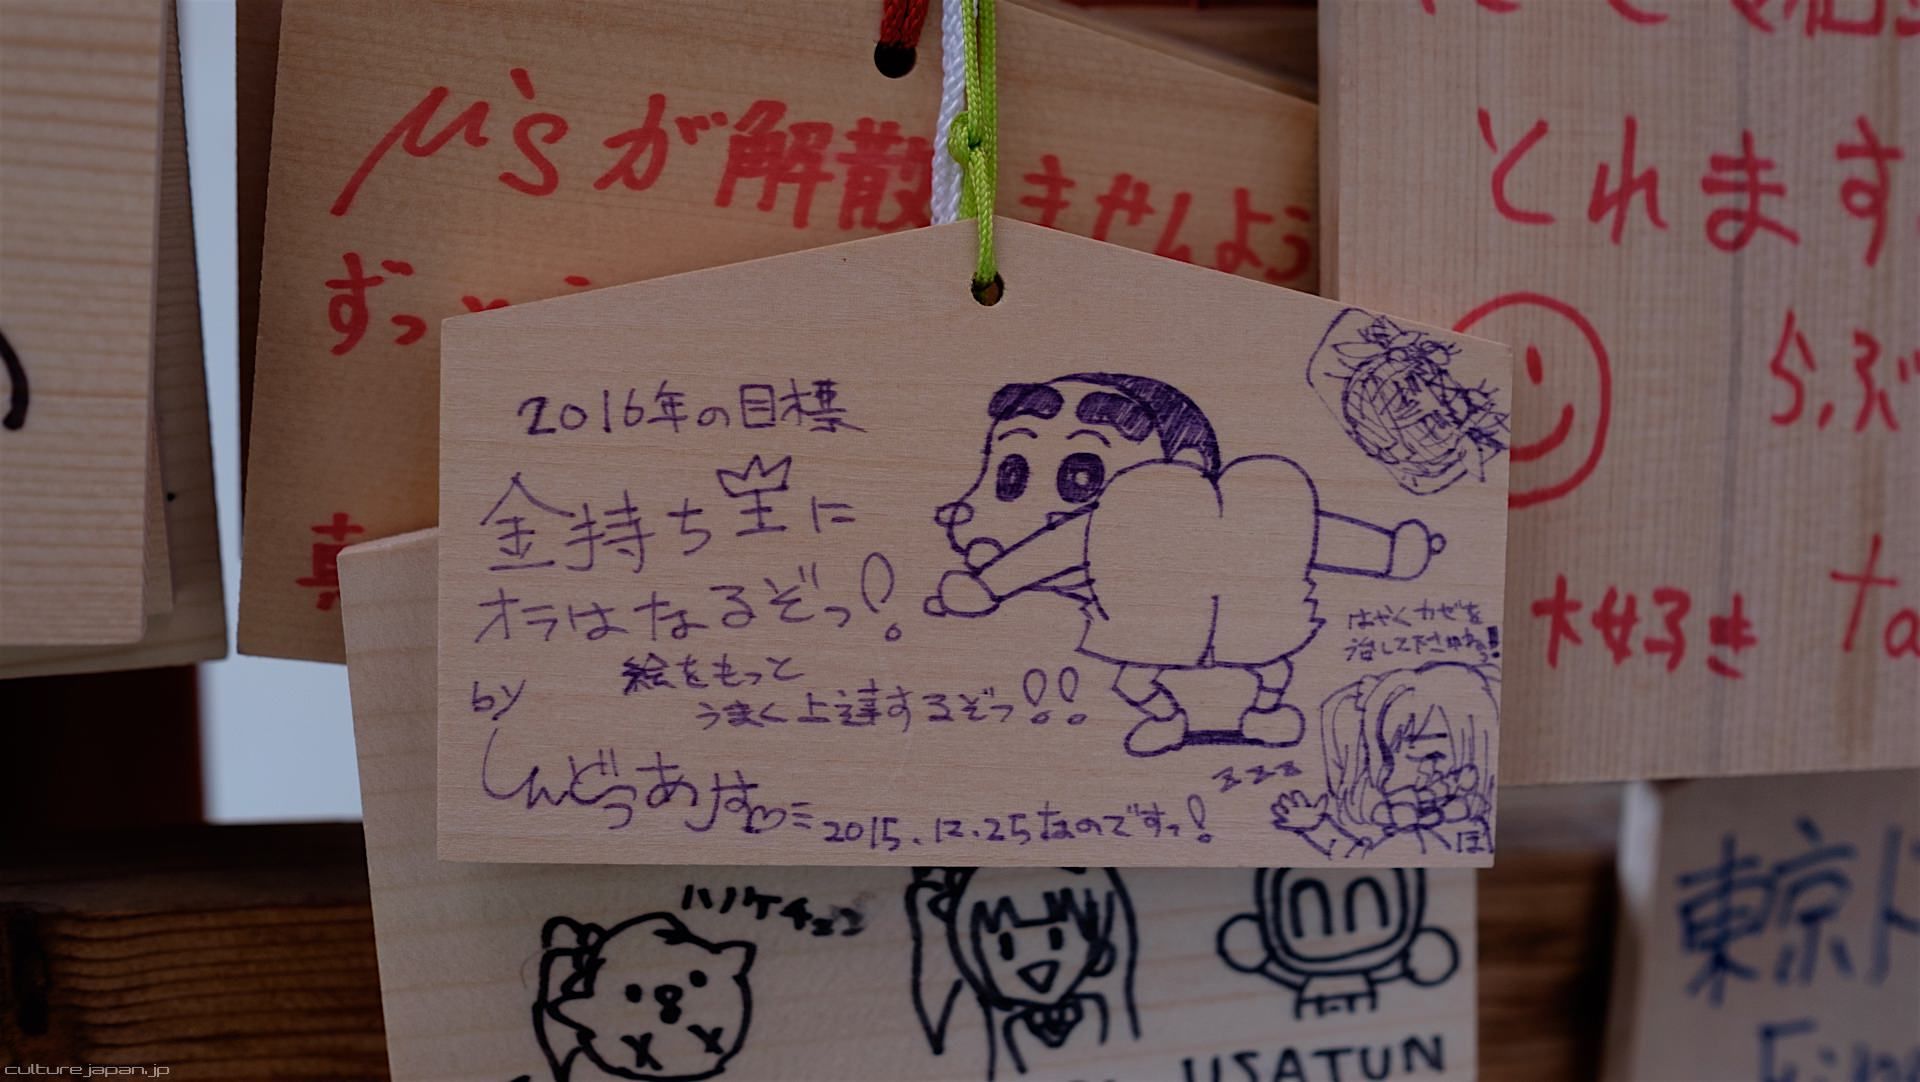 μ'sが解散 ませんよう
ずっと
真
とれます
らぶ
大好き
2016年の目標
金持ち王に
オラはなるぞっ!
絵をもっと
うまく上達するぞっ!!
by
しんどうあす♡
2015.12.25なのですっ!
はやくカゼを
治して下さいねっ!
zzz
ぽ
USATUN
東京ド
culture.japan.jp